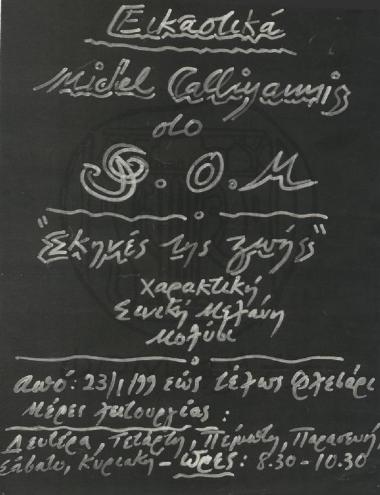 Εικαστικά
Michel Calligannis
στο
S.O.M
"Σκηνές της ζωής"
Χαρακτική
Σινική Μελάνη
Μολύβι
από: 23/1/99 εώς τέλως Φλεβάρι
Μέρες λειτουργίας:
Δευτέρα, Τετάρτη, Πέμπτη, Παρασκευή,
Σάβατο, Κυριακή - ώρες: 8.30 - 10.30